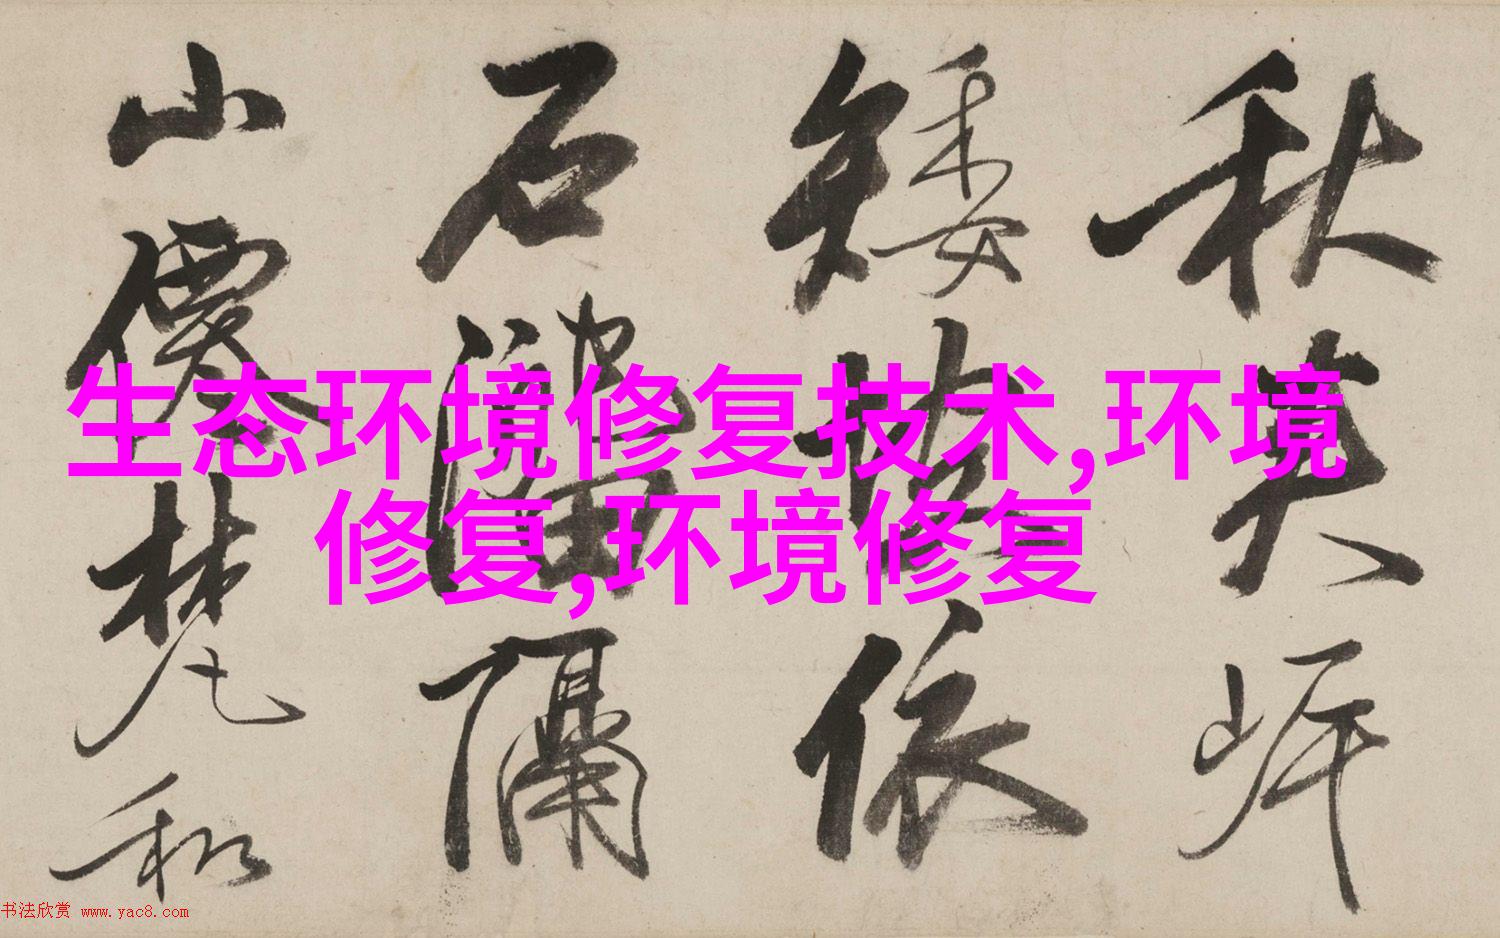 生态环境修复技术,环境
修复,环境修复
秋英
矮依
石隔
山僊梵和
书法欣赏 www.yac8.com